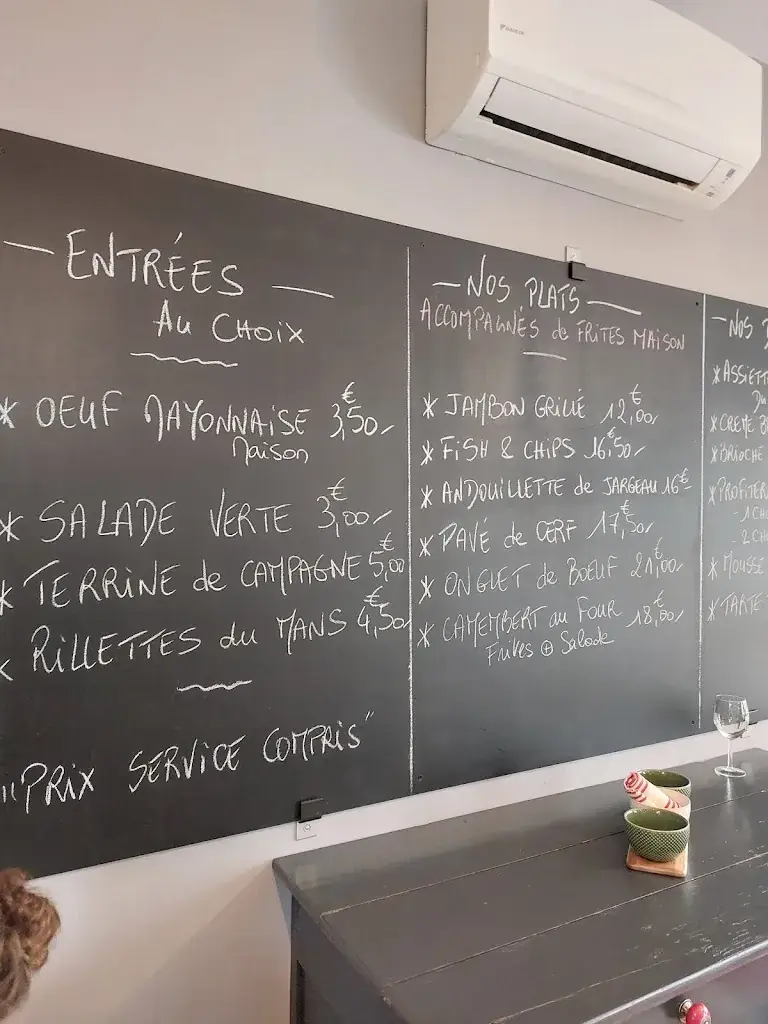 DAIKIN
— ENTRÉES —
AU CHOIX
* OEUF MAYONNAISE 3,50€
Maison
* SALADE VERTE 3,00€
* TERRINE de CAMPAGNE 5,00€
* RILLETTES du MANS 4,50€
"PRIX SERVICE COMPRIS"
— NOS PLATS —
ACCOMPAGNÉS de FRITES MAISON
* JAMBON GRILLÉ 12,00€
* FISH & CHIPS 16,50
* ANDOUILLETTE de JARGEAU 16€
* PAVÉ de CERF 17,50€
* ONGLET de BOEUF 21,00€
* CAMEMBERT au FOUR 18,00€
Frites ⊕ Salade
— NOS
* ASSIETT
Du
* CREME B
* BRIOCHE
* PROFITER
- 1 CHO
- 2 CHO
* MOUSSE
* TARTE